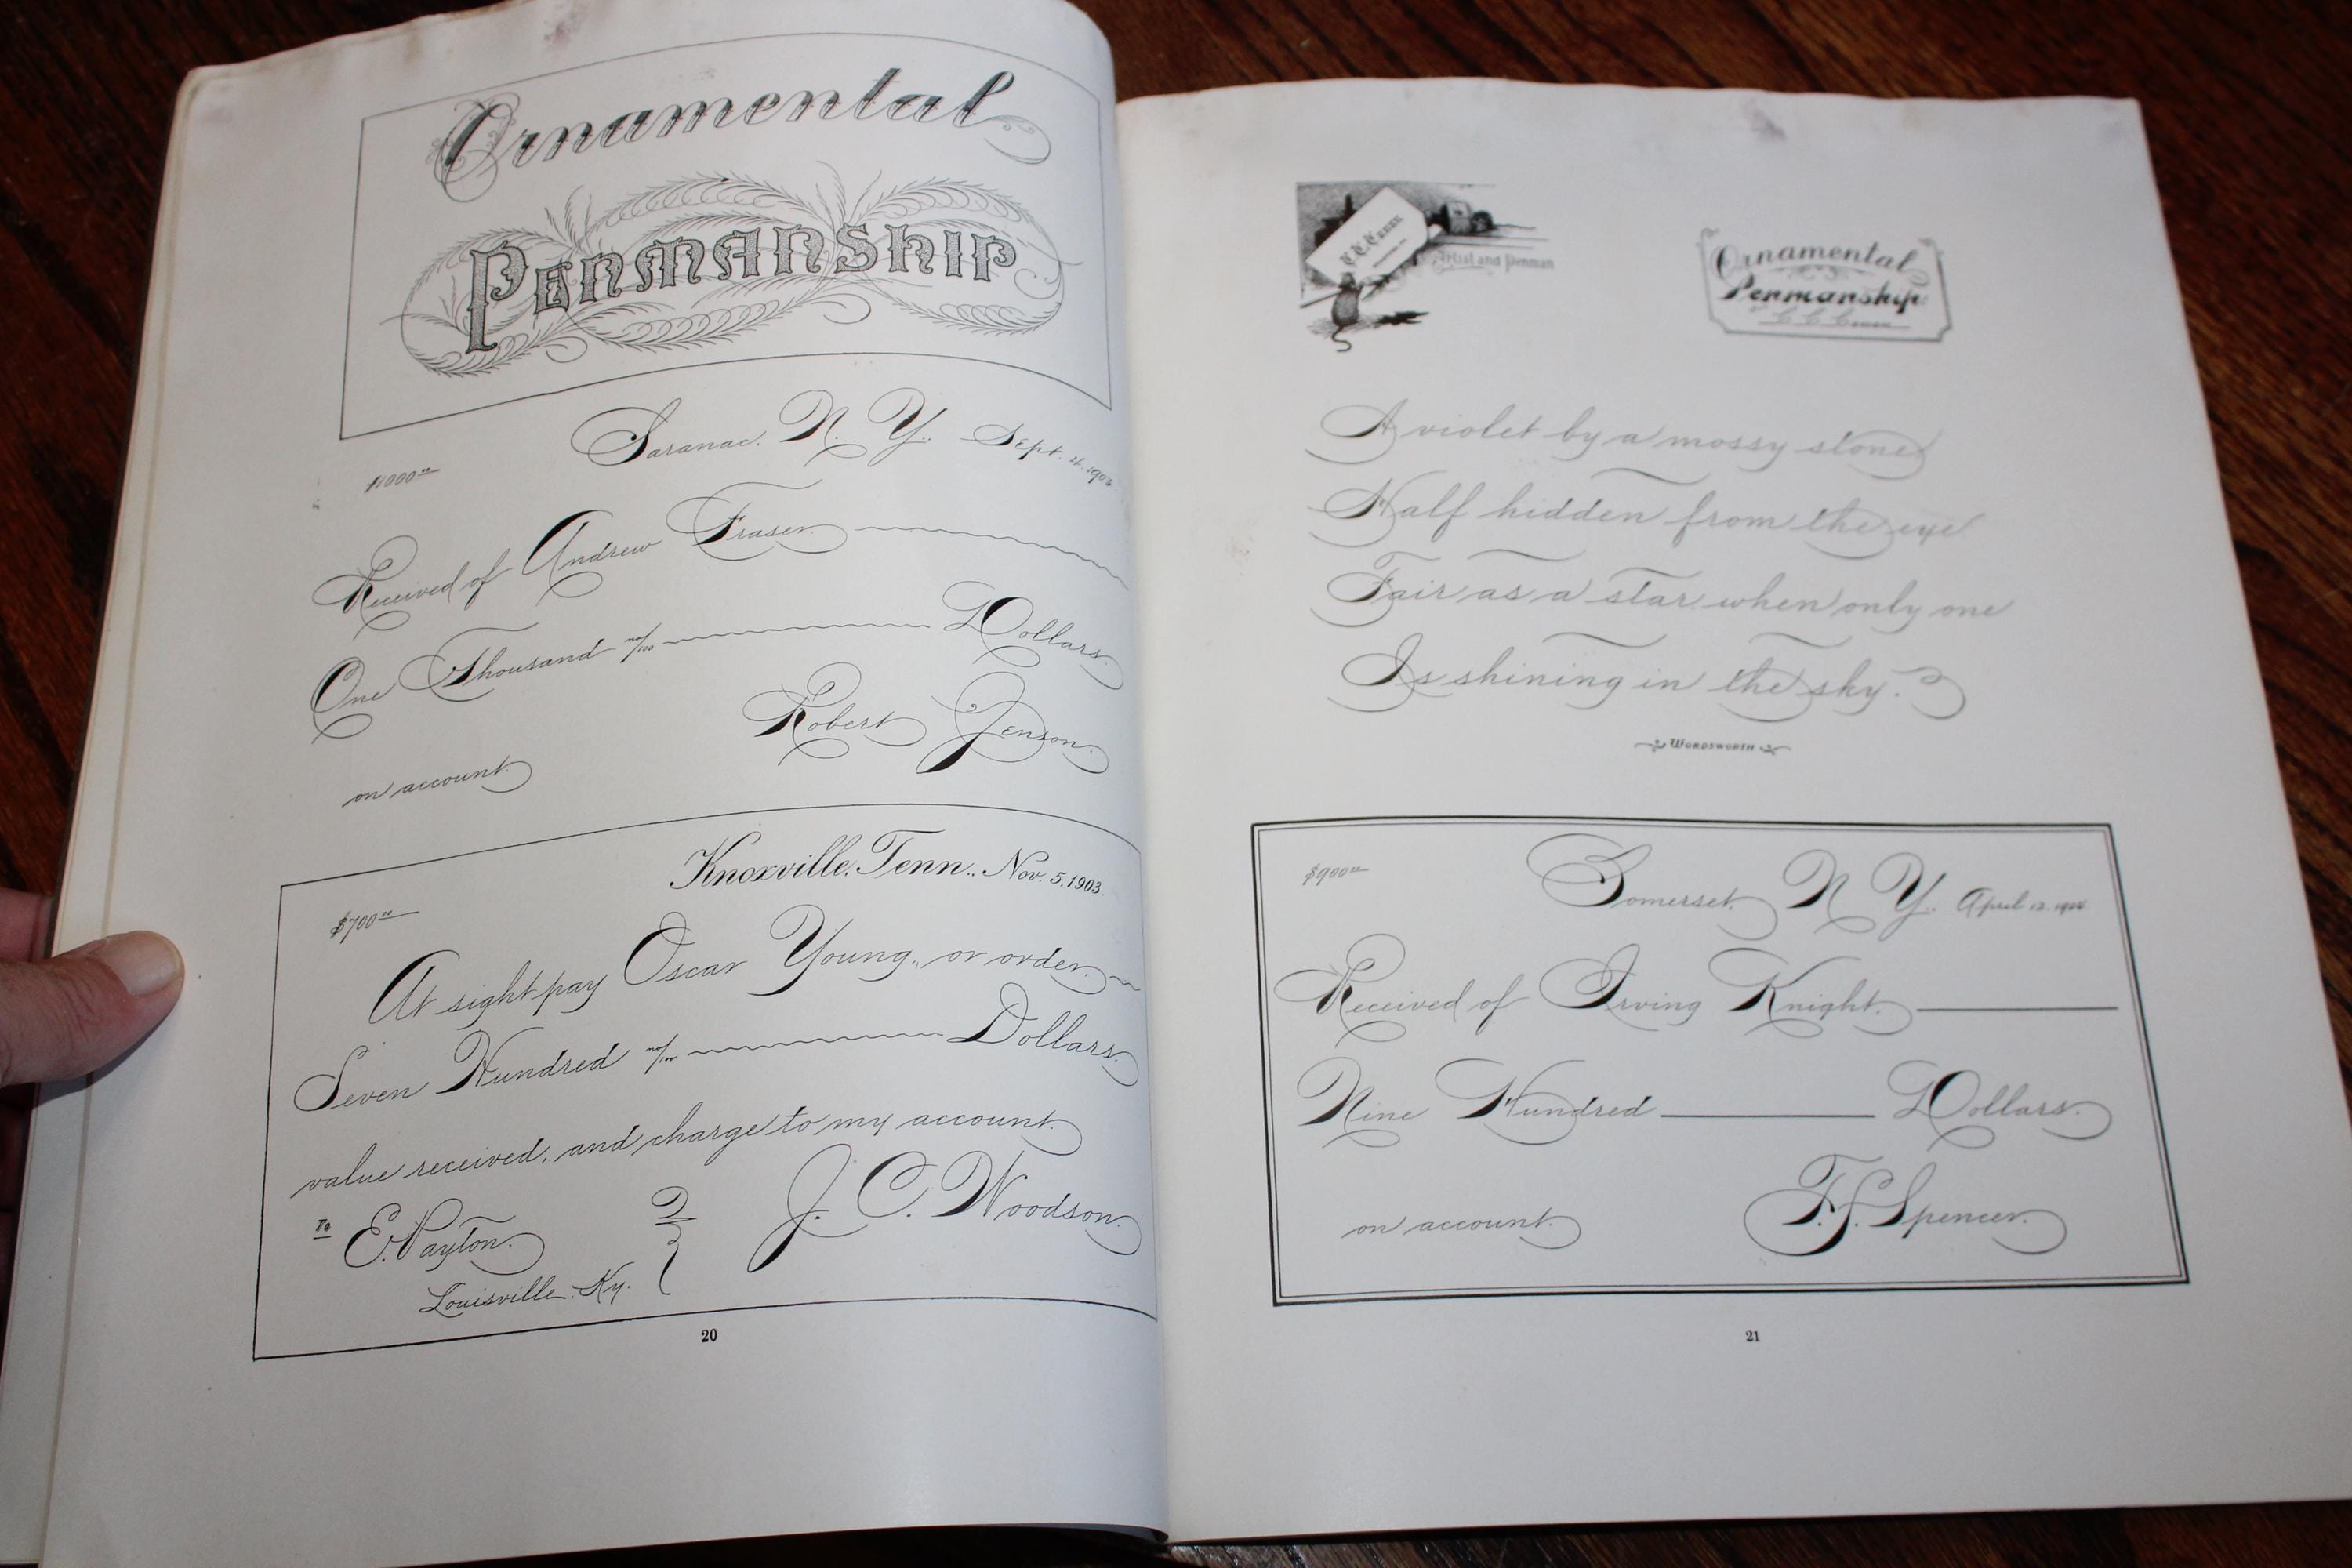 Ornamental
Penmanship
Saranac, N. Y., Sept. 4, 190
$1000⁰⁰
Received of Andrew Fraser
One Thousand no/100 Dollars.
Robert Jenson.
on account.
Knoxville, Tenn., Nov. 5, 1903.
$700⁰⁰
At sight pay Oscar Young, or order,
Seven Hundred no/100 Dollars.
value received, and charge to my account.
To E. Payton.
J. C. Woodson.
Louisville, Ky.
20
Artist and Penman
Ornamental
Penmanship:
C. C. Canan
A violet by a mossy stone
Half hidden from the eye
Fair as a star when only one
Is shining in the sky.
Wordsworth
$900⁰⁰
Somerset, N. Y., April
Received of Irving Knight.
Nine Hundred Dollars.
on account.
F. S. Spencer.
21